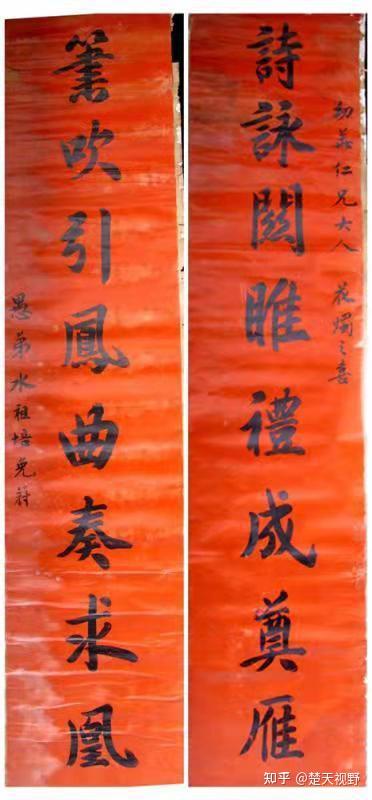 幼仁兄大人 花燭之喜
詩詠關雎禮成奠雁
簫吹引鳳曲奏求凰
愚弟水祖培
知乎 @楚天视野